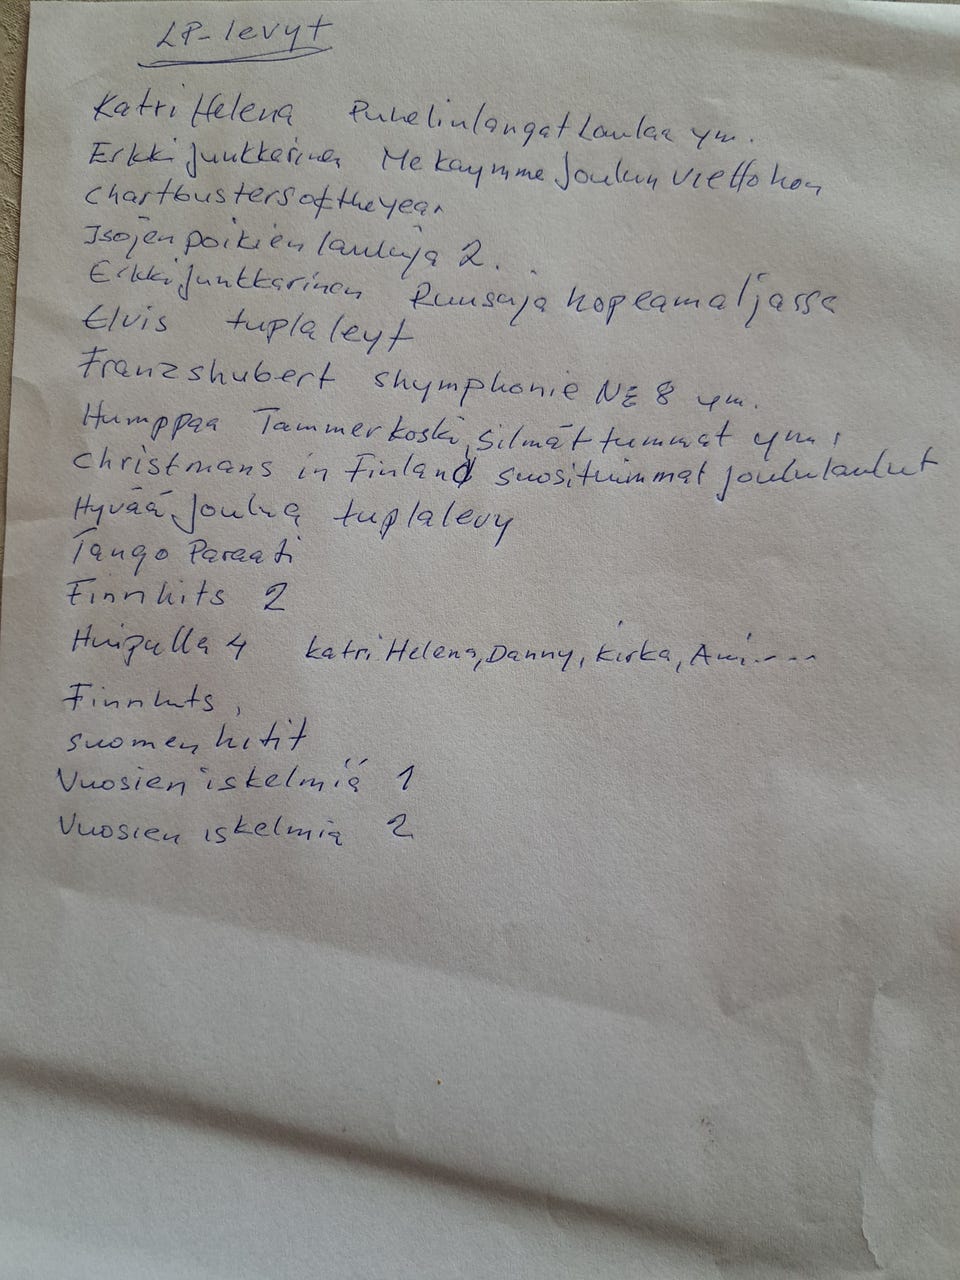 LP-levyt
Katri Helena Puhelinlangat Laulaa ym.
Erkki Junkkarinen Me kaymme Joulun viettohon
Chartbusters of the year
Isojen poikien lauluja 2.
Erkki Junkkarinen Ruusuja hopeamaljassa
Elvis tuplaleyt
Franz shubert shymphonie NE 8 ym.
Humppaa Tammerkoski, Silmät tummat ym.
Christmans in Finland suosituimmat joululaulut
Hyvää Joulua tuplalevy
Tango Paraati
Finnhits 2
Huipulla 4 Katri Helena, Danny, Kirka, Ami....
Finnhits,
suomen hitit
Vuosien iskelmiä 1
Vuosien iskelmiä 2